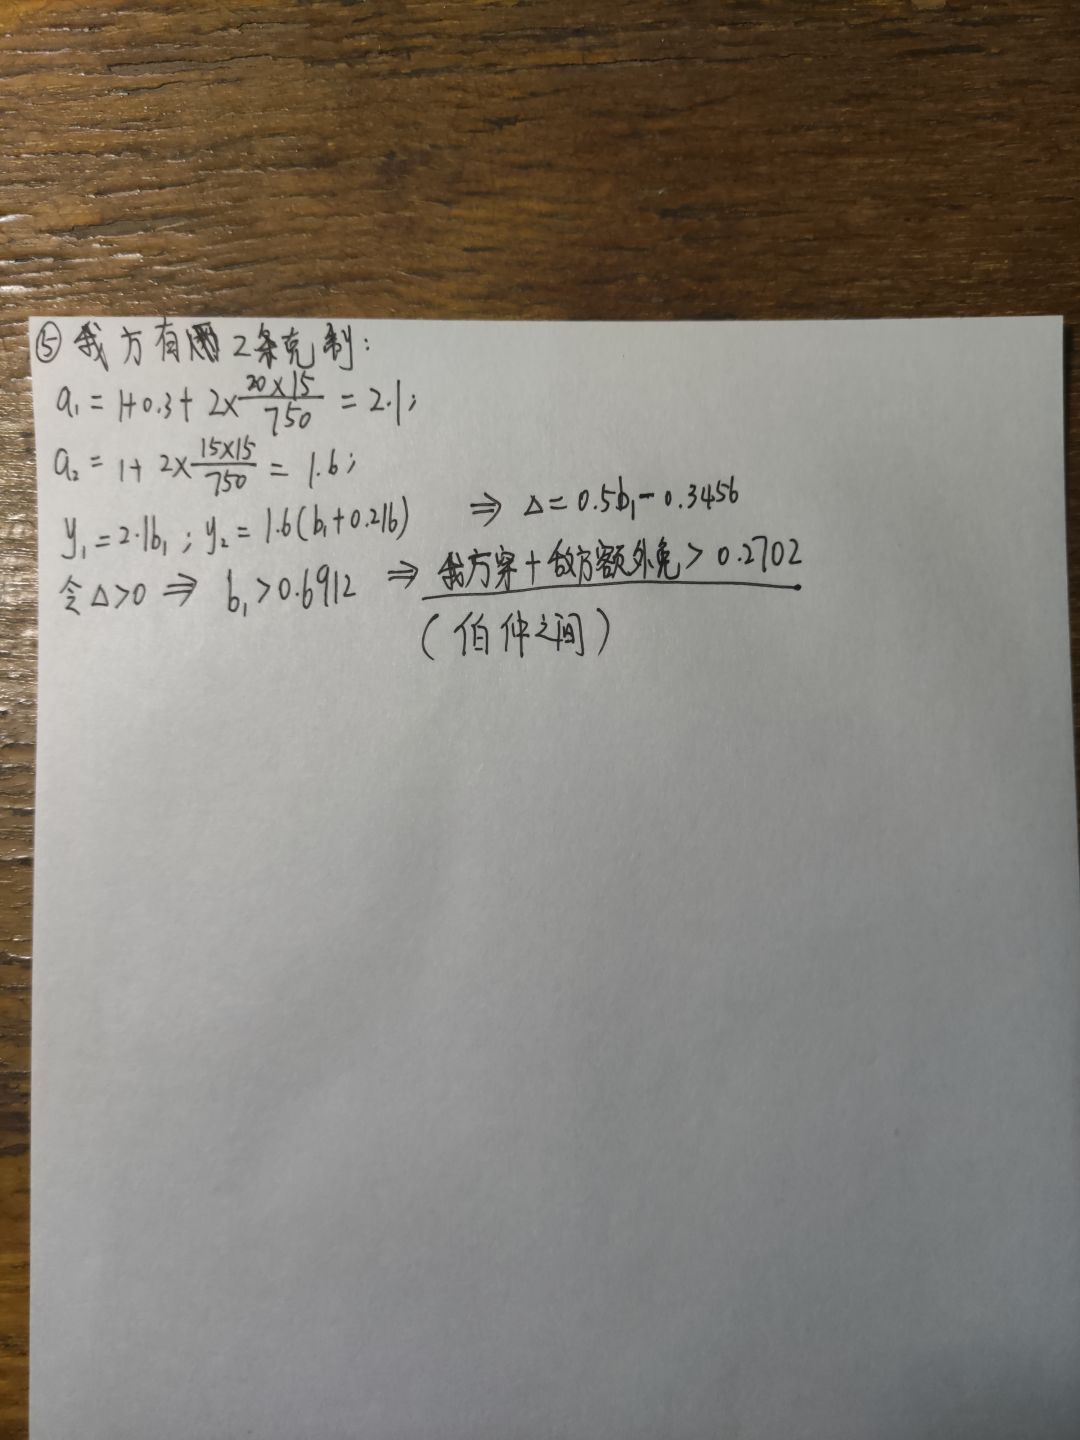 ⑤ 我方有2条克制:
a₁ = 1+0.3+ 2×\frac{20×15}{750} = 2.1;
a₂ = 1+ 2×\frac{15×15}{750} = 1.6;
y₁=2.1b₁ ; y₂= 1.6(b₁+0.216) ⇒ Δ= 0.5b₁-0.3456
令 Δ>0 ⇒ b₁>0.6912 ⇒ 我方穿+敌方额外免> 0.2702
(伯仲之间)